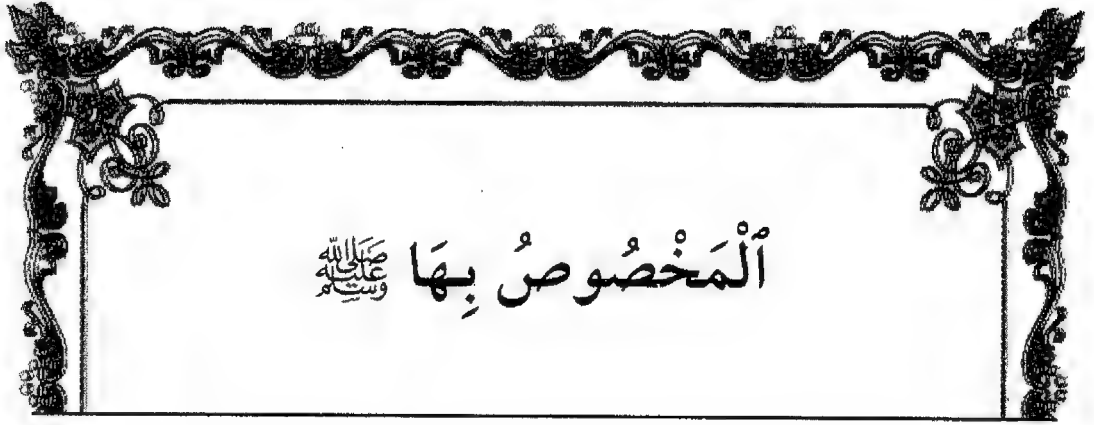 ٱلْمَخْصُوصُ بِهَا ﷺ